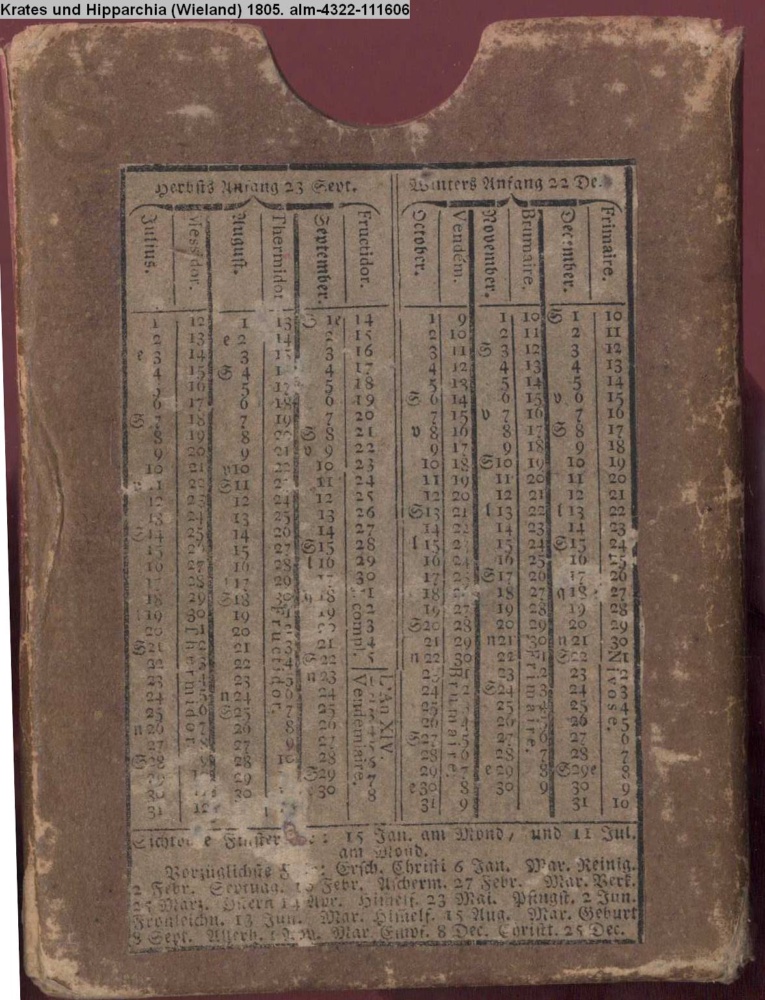 Krates und Hipparchia (Wieland) 1805. alm-4322-111606
Herbsts Anfang 23 Sept. Winters Anfang 22 De.
Julius. Messidor. August. Thermidor September. Fructidor. October. Vendém. November. Brumaire. December. Frimaire.
1 12 1 13 S 1e 14 1 9 1 10 S 1 10
2 13 e 2 14 2 15 2 10 2 11 2 11
e 3 14 3 3 16 3 11 S 3 12 3 12
4 15 S 4 4 17 4 12 4 13 4 13
5 16 5 5 18 5 13 5 14 5 14
6 17 6 18 6 19 S 6 14 6 15 v 6 15
S 7 18 7 19 7 20 7 15 v 7 16 7 16
8 19 8 S 8 21 v 8 16 8 17 S 8 17
9 20 9 21 v 9 22 9 17 9 18 9 18
10 21 v10 22 10 23 10 18 S10 19 10 19
22 S11 11 24 11 19 11 20 11 20
12 23 12 24 12 25 12 20 12 21 12 21
13 24 13 25 13 26 S13 21 l 13 22 l 13 22
S14 25 14 26 14 27 14 22 14 23 14 23
15 15 27 S15 28 l 15 15 24 S15 24
16 27 16 28 l 16 29 16 24 16 25 16
28 29 30 17 S17 26 17 26
18 29 S18 18 1 18 18 27 q 18 27
19 30 19 19 2 19 27 19 28 19 28
20 20 3 S20 28 20 29 20 29
S21 21 21 4 21 29 n21 30 n 21 30
22 22 S 22 5 n 22 30 22 S22
23 23 n 23 23 23 23
24 n 24 24 24 S24 24
25 S25 25 25 25 25
n 26 26 26 26 26 26
27 27 S27 27 27
S28 28 28 28 28 28 7
29 S29 7 29 7 e 29 8 S29e 8
30 30 e 30 8 e 30 8 30 9 30 9
31 31 9 31 10
Thermidor Fructidor. compl. L'An XIV. Vendemiaire. Brumaire. Frimaire. Nivose.
15 Jan. am Mond, und 11 Jul.
am Mond.
Vorzüglichste Ersch. Christi 6 Jan. Mar. Reinig.
2 Febr. Septuag. Febr. Ascherm. 27 Febr. Mar. Verk.
25 März. Ostern 14 Apr. Himelf. 23 Mai. Pfingst. 2 Jun.
Fronleichn. 13 Jun. Mar. Himelf. 15 Aug. Mar. Geburt
8 Sept. Allerh. Mar. Empf. 8 Dec. Christt. 25 Dec.